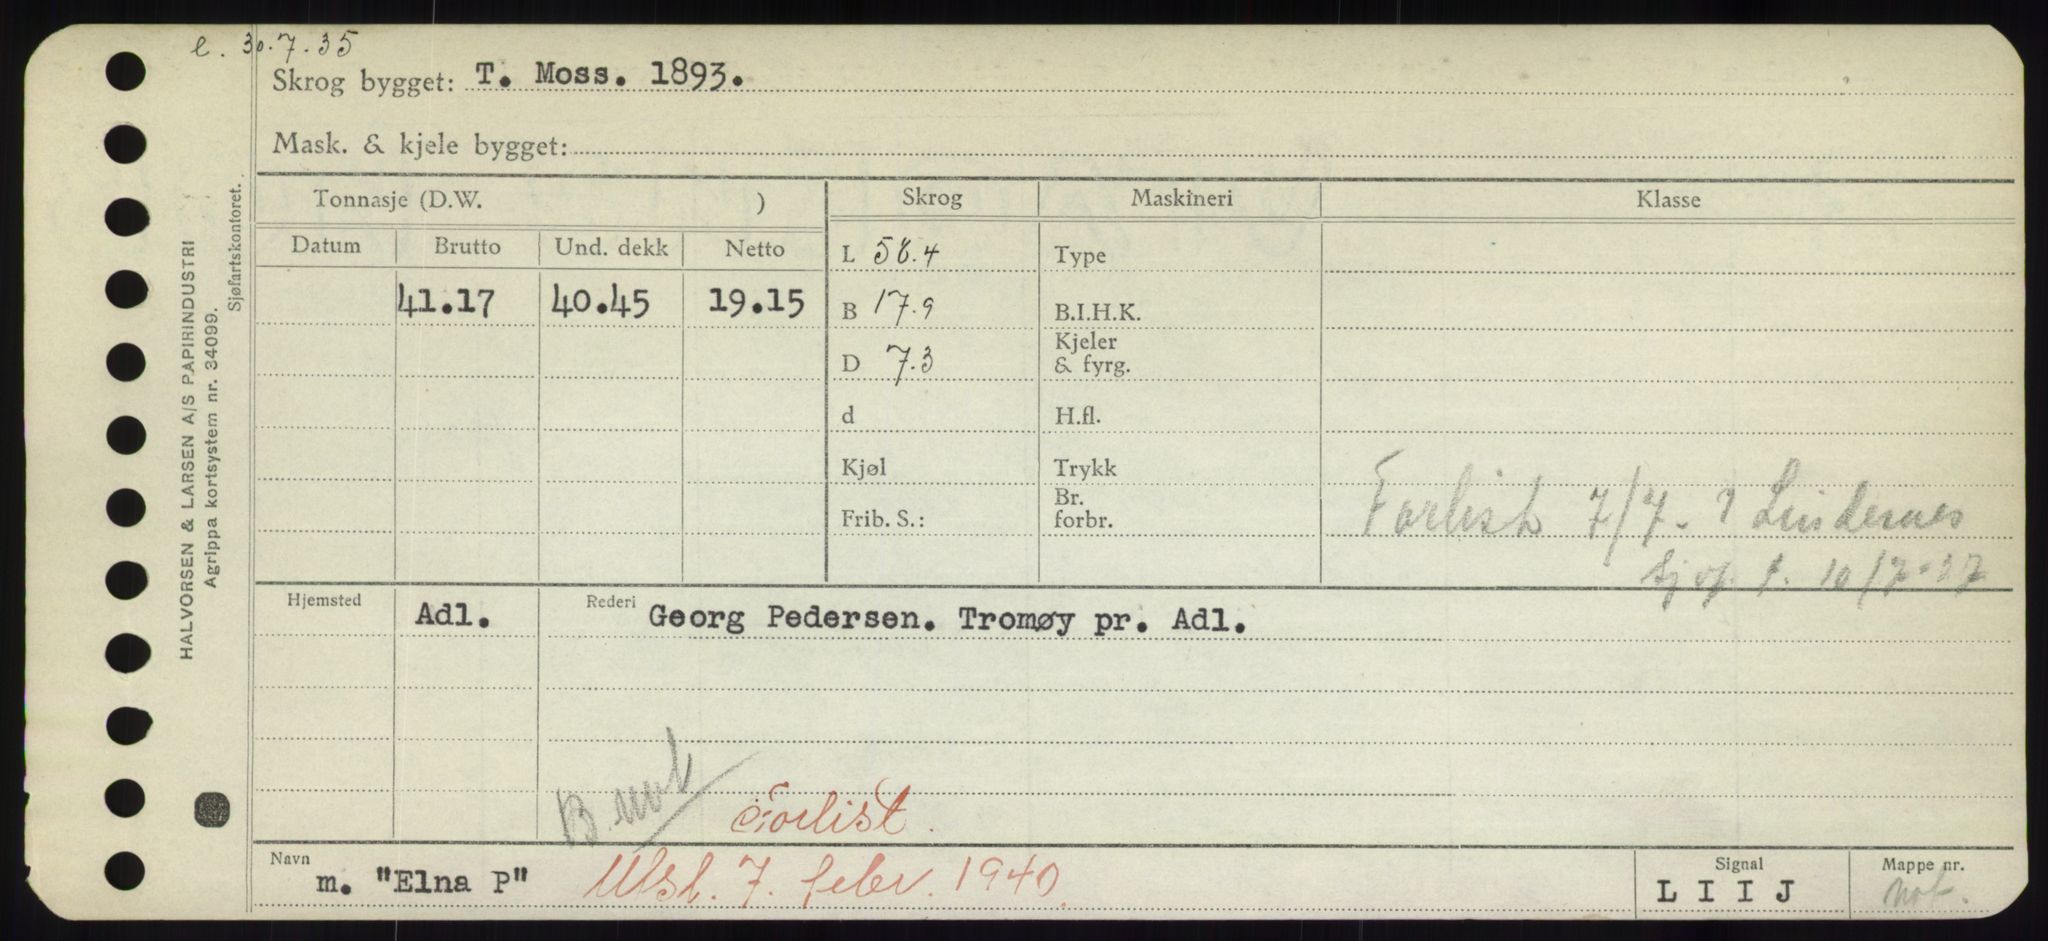 e. 30.7.35
Skrog bygget: T. Moss. 1893.
Mask. & kjele bygget:
HALVORSEN & LARSEN A/S PAPIRINDUSTRI
Agrippa kortsystem nr. 34099.
Sjøfartskontoret.
Tonnasje (D.W. ) Skrog Maskineri Klasse
Datum Brutto Und. dekk Netto
L 58.4 Type
41.17 40.45 19.15 B 17.9 B.I.H.K.
D 7.3 Kjeler & fyrg.
d H.fl.
Kjøl Trykk
Frib. S.: Br. forbr.
Forlist 7/7- Lindesnes
10/7-37
Hjemsted Adl. Rederi Georg Pedersen. Tromøy pr. Adl.
Forlist.
Navn m. "Elna P" Utsl. 7. febr. 1940.
Signal L I I J
Mappe nr. not.